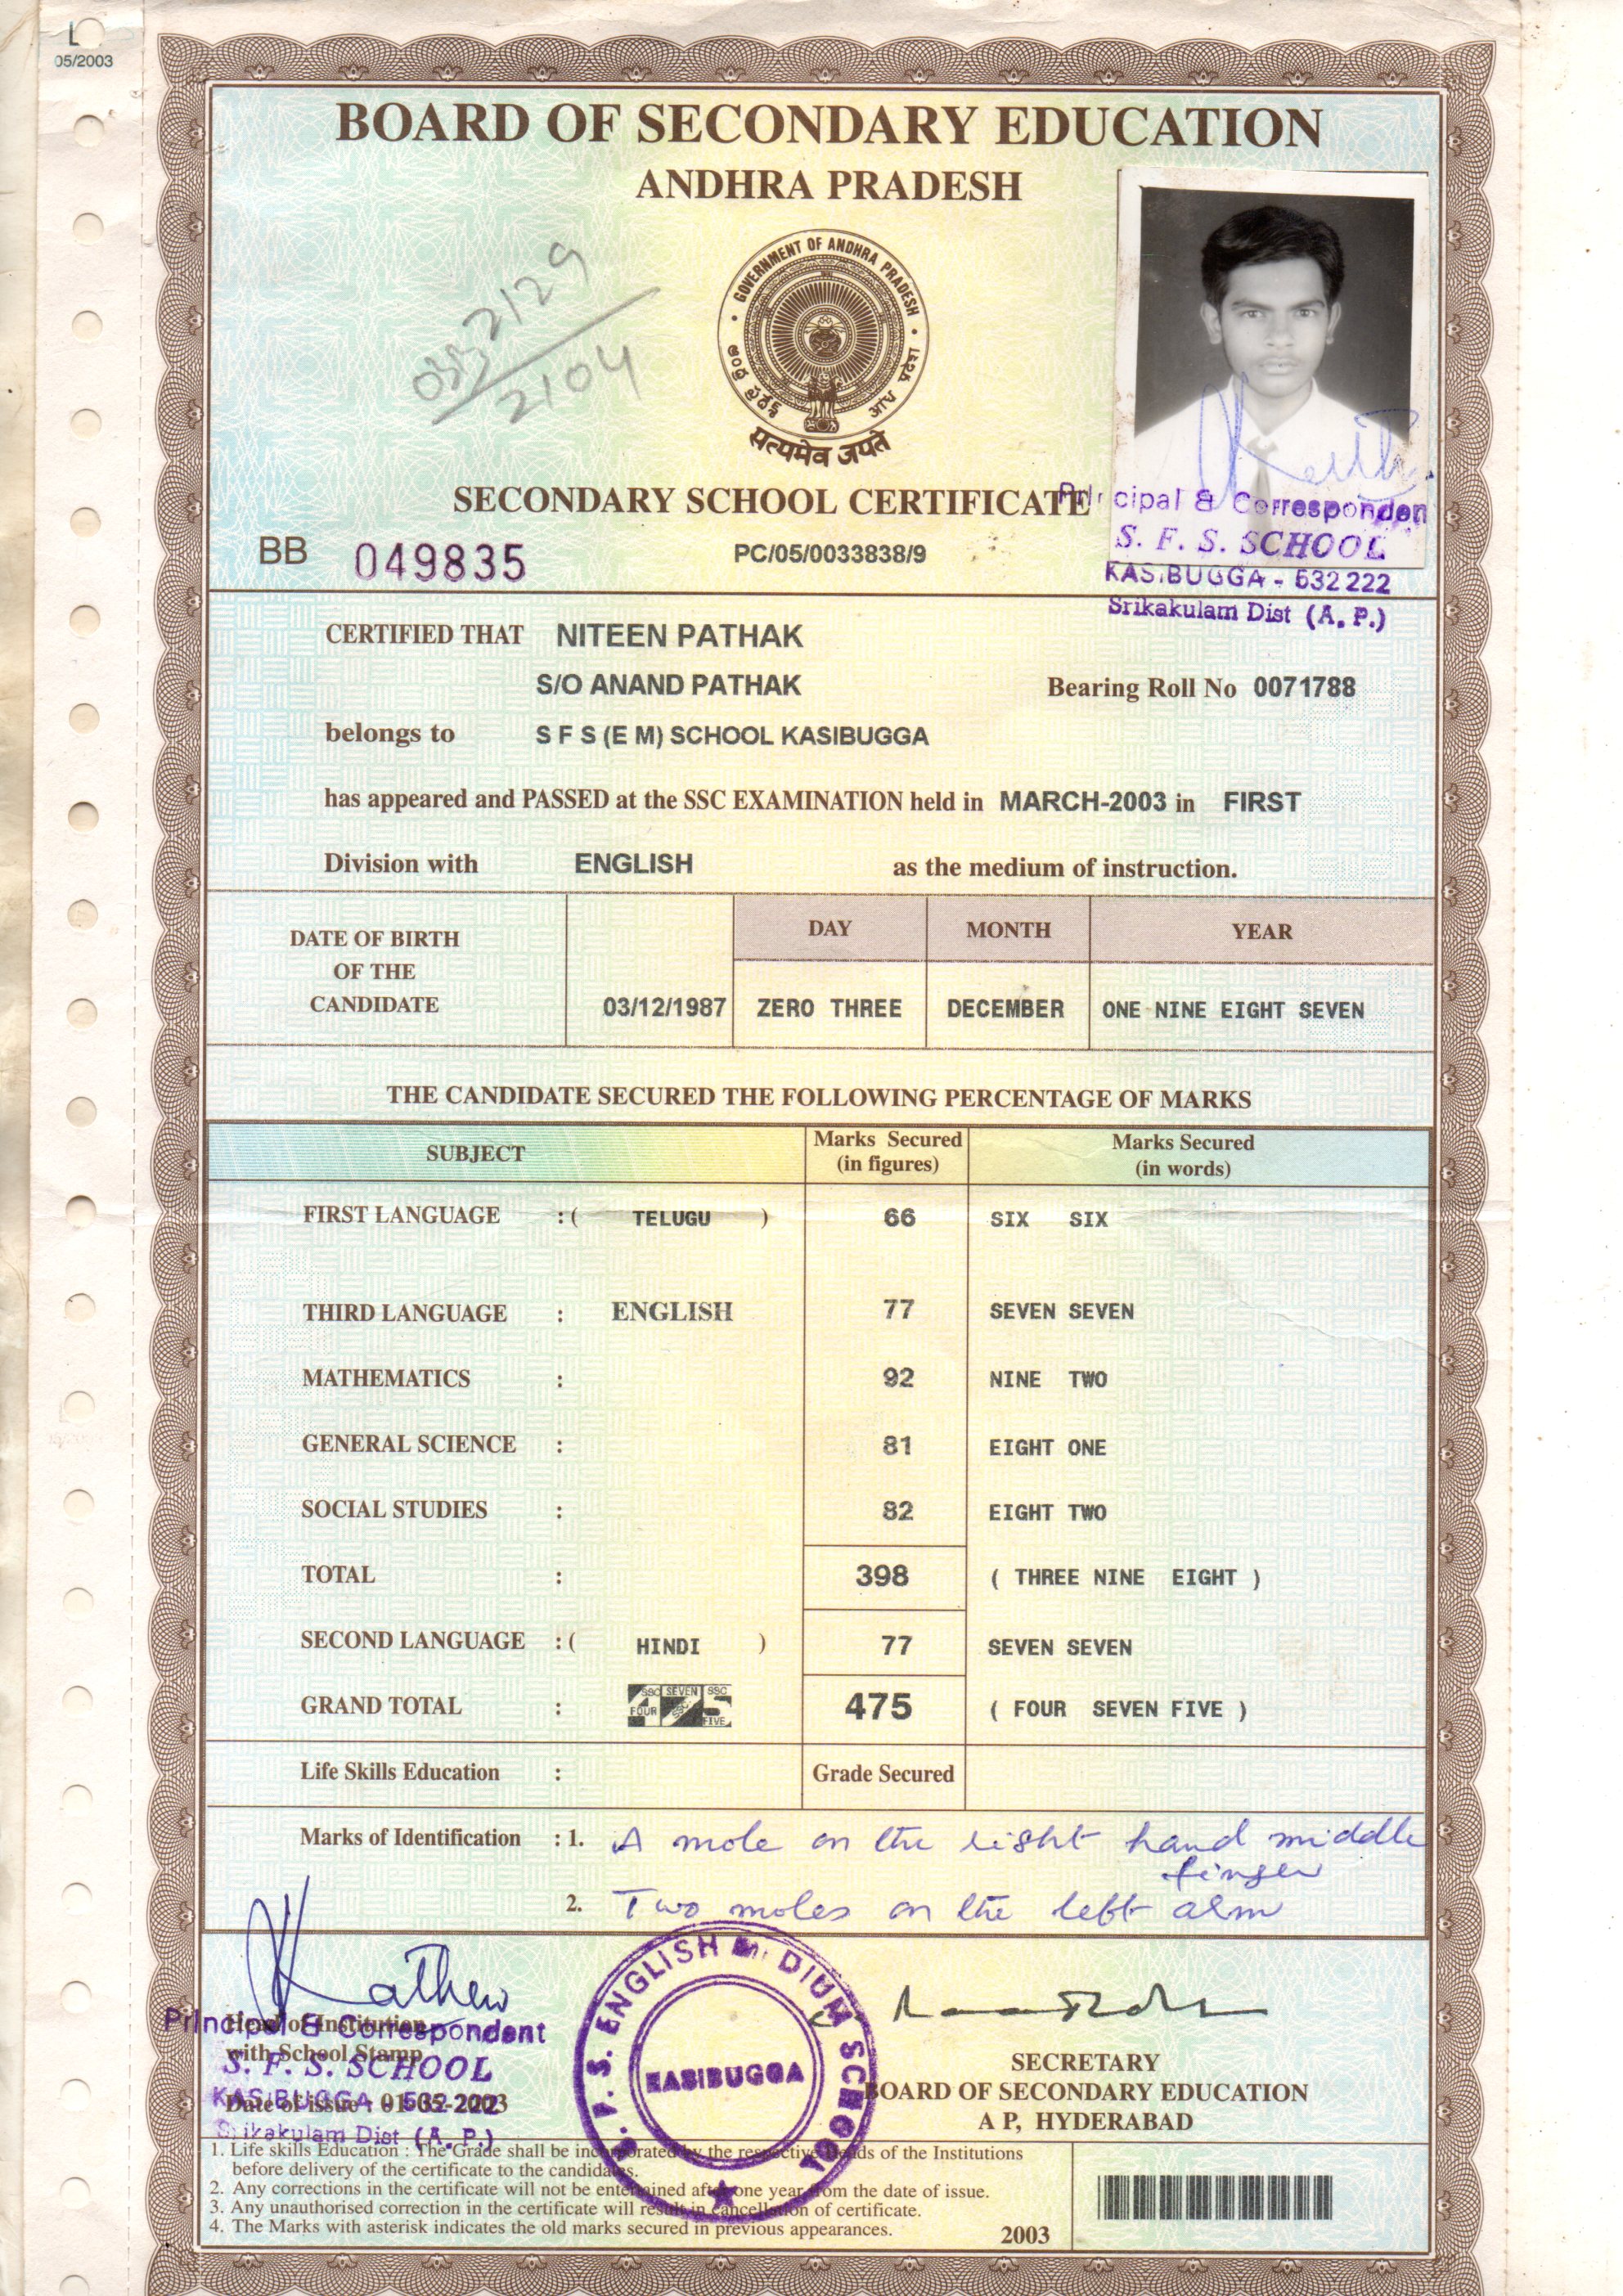 L
05/2003
BOARD OF SECONDARY EDUCATION
ANDHRA PRADESH
2129
2104
GOVERNMENT OF ANDHRA PRADESH
ఆంధ్ర ప్రదేశ్
आंध्र प्रदेश
सत्यमेव जयते
SECONDARY SCHOOL CERTIFICATE
Principal & Corresponden
S. F. S. SCHOOL
KASIBUGGA - 532 222
Srikakulam Dist (A. P.)
BB 049835 PC/05/0033838/9
CERTIFIED THAT NITEEN PATHAK
S/O ANAND PATHAK Bearing Roll No 0071788
belongs to S F S (E M) SCHOOL KASIBUGGA
has appeared and PASSED at the SSC EXAMINATION held in MARCH-2003 in FIRST
Division with ENGLISH as the medium of instruction.
DATE OF BIRTH OF THE CANDIDATE
DAY MONTH YEAR
03/12/1987 ZERO THREE DECEMBER ONE NINE EIGHT SEVEN
THE CANDIDATE SECURED THE FOLLOWING PERCENTAGE OF MARKS
SUBJECT Marks Secured (in figures) Marks Secured (in words)
FIRST LANGUAGE : ( TELUGU ) 66 SIX SIX
THIRD LANGUAGE : ENGLISH 77 SEVEN SEVEN
MATHEMATICS : 92 NINE TWO
GENERAL SCIENCE : 81 EIGHT ONE
SOCIAL STUDIES : 82 EIGHT TWO
TOTAL : 398 ( THREE NINE EIGHT )
SECOND LANGUAGE : ( HINDI ) 77 SEVEN SEVEN
SSC SEVEN SSC
GRAND TOTAL : 475 ( FOUR SEVEN FIVE )
FOUR FIVE
Life Skills Education : Grade Secured
Marks of Identification : 1. A mole on the right hand middle
finger
2. Two moles on the left arm
Principal & Correspondent
Head of Institution
with School Stamp
S. F. S. SCHOOL
KASIBUGGA - 532 222
Date of issue :
Srikakulam Dist (A. P.)
S. F. S. ENGLISH MEDIUM SCHOOL
KASIBUGGA
SECRETARY
BOARD OF SECONDARY EDUCATION
A P, HYDERABAD
1. Life skills Education : The Grade shall be incorporated by the respective Heads of the Institutions
before delivery of the certificate to the candidates.
2. Any corrections in the certificate will not be entertained after one year from the date of issue.
3. Any unauthorised correction in the certificate will result in cancellation of certificate.
4. The Marks with asterisk indicates the old marks secured in previous appearances.
2003